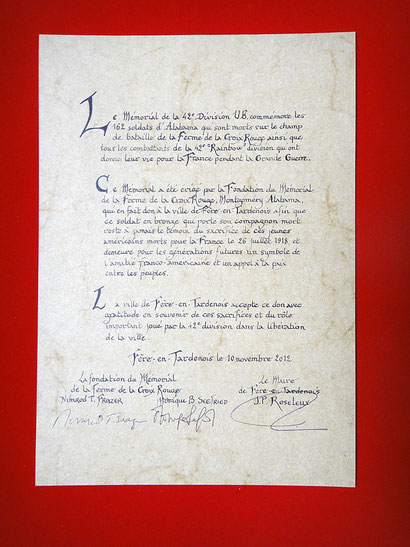 Le Mémorial de la 42e Division U.S. commémore les
162 soldats d'Alabama qui sont morts sur le champ
de bataille de la Ferme de la Croix Rouge ainsi que
tous les combattants de la 42e "Rainbow" division qui ont
donné leur vie pour la France pendant la Grande Guerre.
Ce Mémorial a été érigé par la Fondation du Mémorial
de la Ferme de la Croix Rouge, Montgomery Alabama,
qui en fait don à la ville de Fère-en-Tardenois afin que
ce soldat en bronze qui porte son compagnon mort
reste à jamais le témoin du sacrifice de ces jeunes
américains morts pour la France le 26 juillet 1918 et
demeure pour les générations futures un symbole de
l'amitié Franco-américaine et un appel à la paix
entre les peuples.
La ville de Fère-en-Tardenois accepte ce don avec
gratitude en souvenir de ces sacrifices et du rôle
important joué par la 42e division dans la libération
de la ville.
Fère-en-Tardenois le 10 novembre 2012
La fondation du Mémorial
de la ferme de la Croix Rouge
Nimrod T. Frazer Monique B. Seefried
Le Maire
de Fère-en-Tardenois
J.P. Roseleux
Nimrod T Frazer